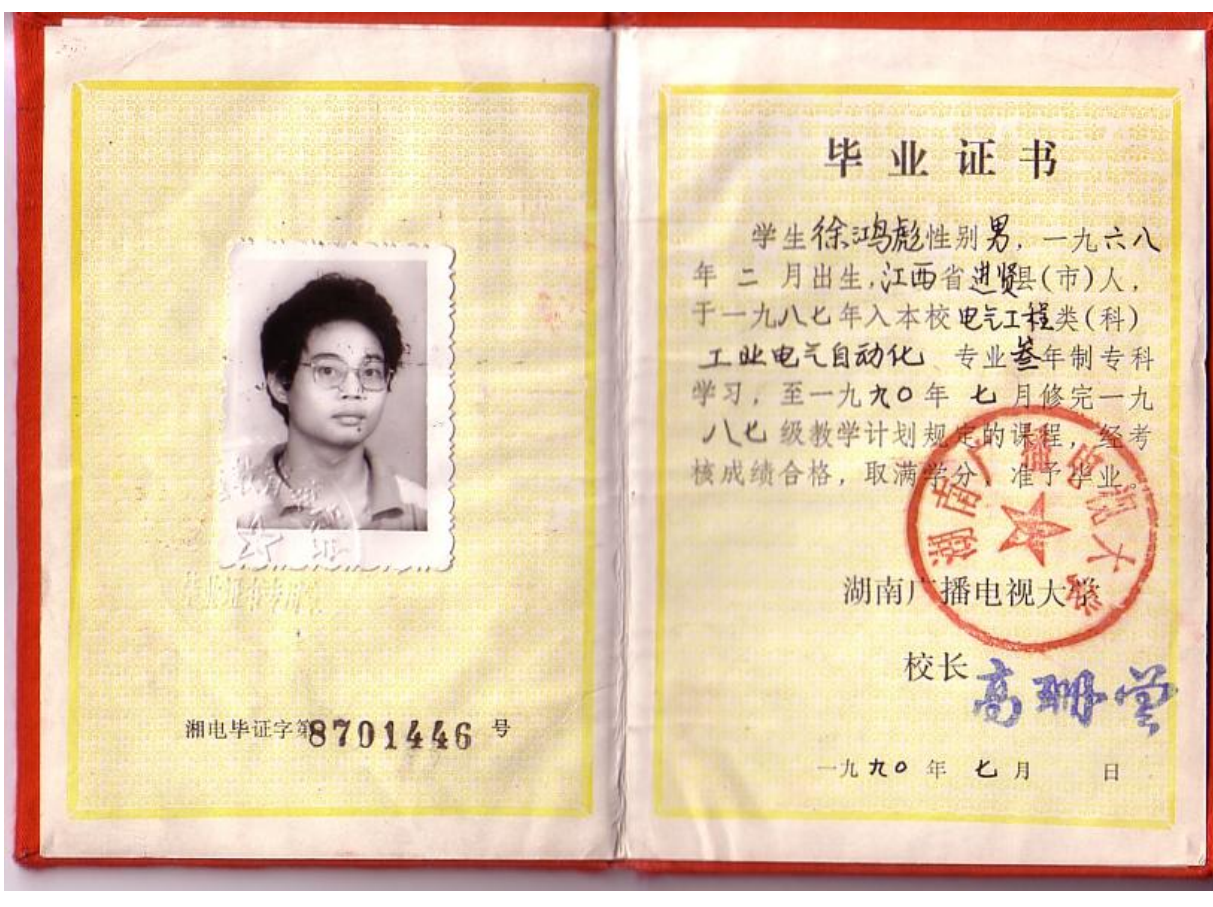 湘电毕证字第8701446号
毕业证书
学生徐鸿彪性别男，一九六八
年二月出生，江西省进贤县(市)人，
于一九八七年入本校电气工程类(科)
工业电气自动化专业叁年制专科
学习，至一九九〇年七月修完一九
八七级教学计划规定的课程，经考
核成绩合格，取满学分，准予毕业。
湖南广播电视大学
湖南广播电视大学
校长
一九九〇年七月 日